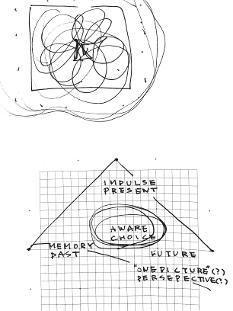 IMPULSE
PRESENT
AWARE
CHOICE
MEMORY
PAST
FUTURE
"ONE PICTURE"(?)
PERSEPECTIVE(?)